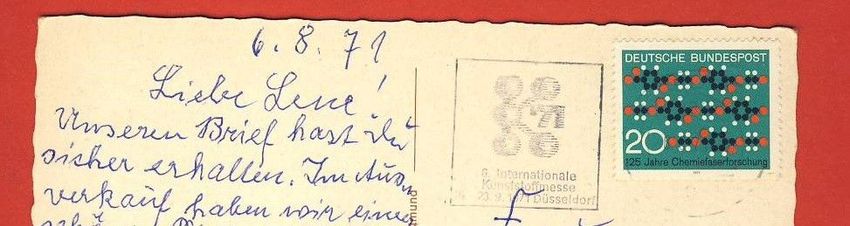 6.8.71
Liebe Lene!
Unseren Brief hast du
sicher erhalten. Im Aus-
verkauf haben wir einen
'71
6. Internationale
Kunststoffmesse
9.1971 Düsseldorf
DEUTSCHE BUNDESPOST
20
125 Jahre Chemiefaserforschung